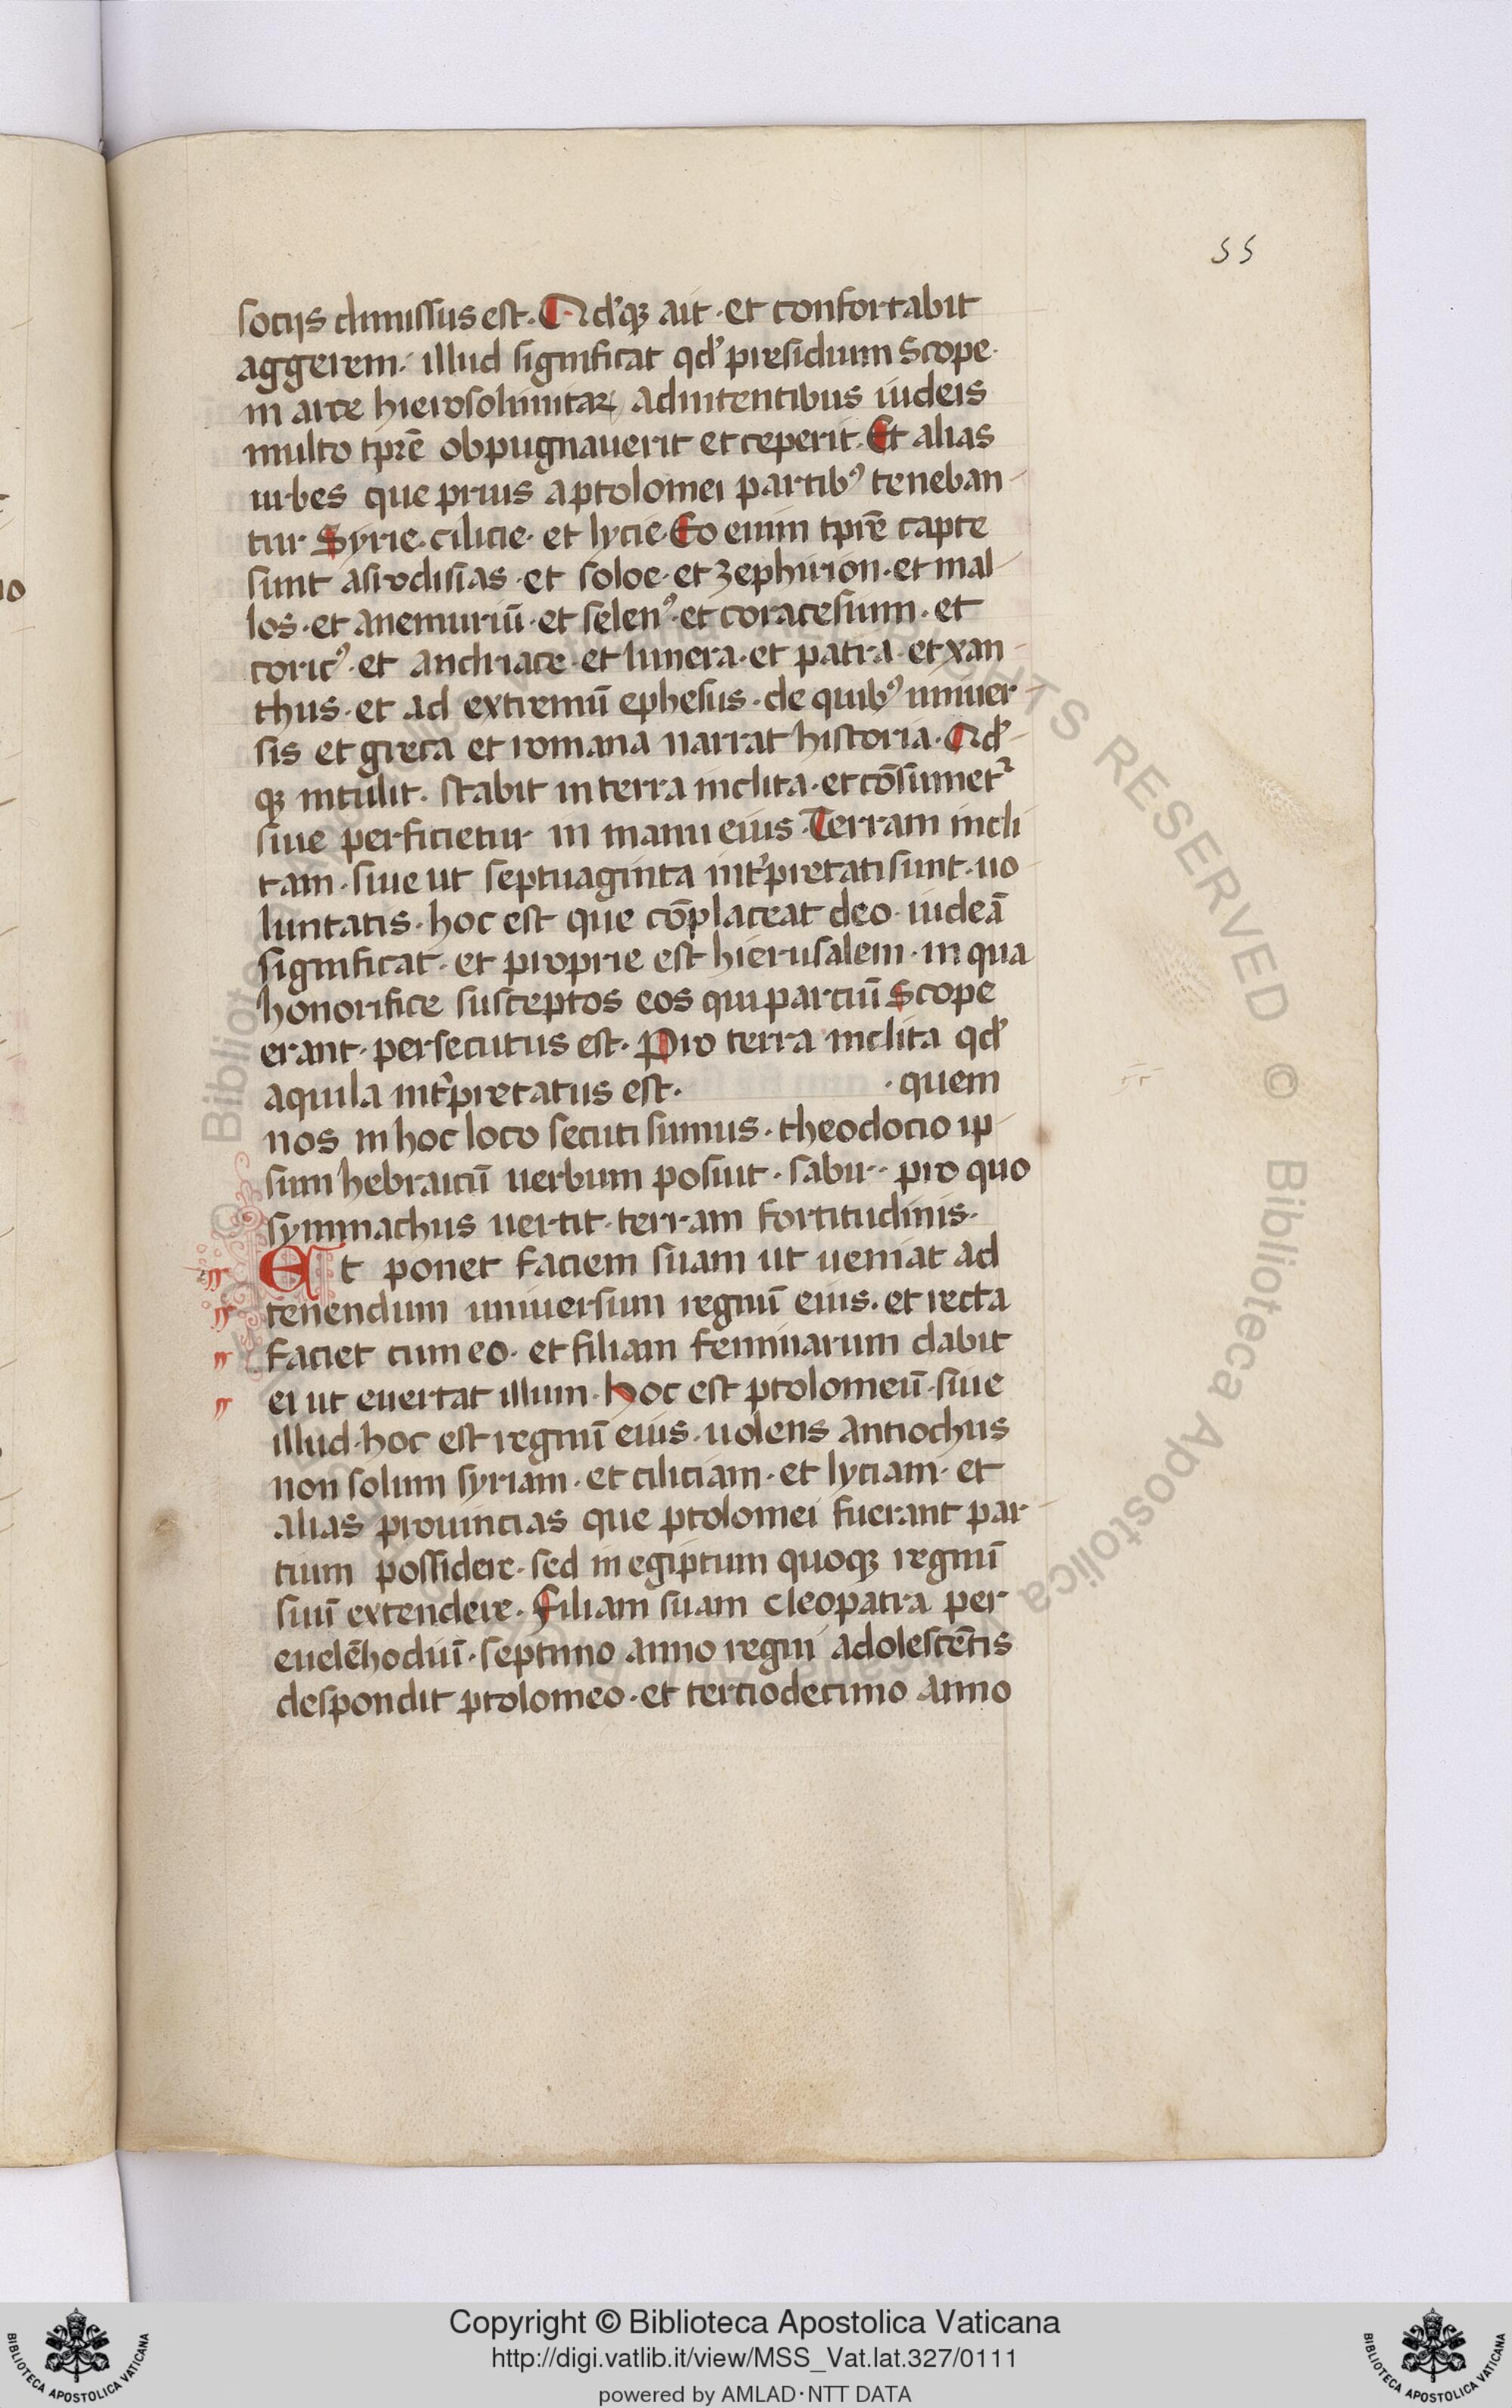 55
sociis dimissus est. Qd'q3 ait · et confortabit
aggerem · illud significat qd' presidium Scope ·
in arce hierosolimitaꝝ adnitentibus iudeis
multo tp̄re obpugnauerit et ceperit. Et alias
urbes que prius a ptolomei partibꝰ teneban-
tur Syrie · cilicie · et lycie · Eo enim tp̄re capte
sunt afrodisias · et soloe · et zephirion · et mal-
los · et anemuriū · et selenꝰ · et coracesium · et
coricꝰ · et andriace · et limera · et patra · et xan-
thus · et ad extremū ephesus · de quibꝰ uniuer-
sis et greca et romana narrat historia. Qd'-
q3 intulit · stabit in terra inclita · et cōsumet᷑
siue perficietur in manu eius. Terram incli
tam · siue ut septuaginta int'pretati sunt · uo-
luntatis · hoc est que cōplaceat deo · iudeā
significat · et proprie est hierusalem · in qua
honorifice susceptos eos qui parciū Scope
erant · persecutus est. Pro terra inclita qd'
aquila int'pretatus est. · quem
nos in hoc loco secuti sumus · theodocio ip-
sum hebraicū uerbum posuit · sabir · pro quo
symmachus uertit · terram fortitudinis ·
Et ponet faciem suam ut ueniat ad
tenendum uniuersum regnū eius · et recta
faciet cum eo · et filiam feminarum dabit
ei ut euertat illum · Hoc est ptolomeū · siue
illud · hoc est regnū eius · uolens antiochus
non solum syriam · et ciliciam · et lyciam · et
alias prouincias que ptolomei fuerant par-
tium possidere · sed in egiptum quoq3 regnū
suū extendere. Filiam suam cleopatra per
euclēhodiū · septimo anno regni adolescētis
despondit ptolomeo · et terciodecimo anno
Copyright © Biblioteca Apostolica Vaticana
http://digi.vatlib.it/view/MSS_Vat.lat.327/0111
powered by AMLAD·NTT DATA